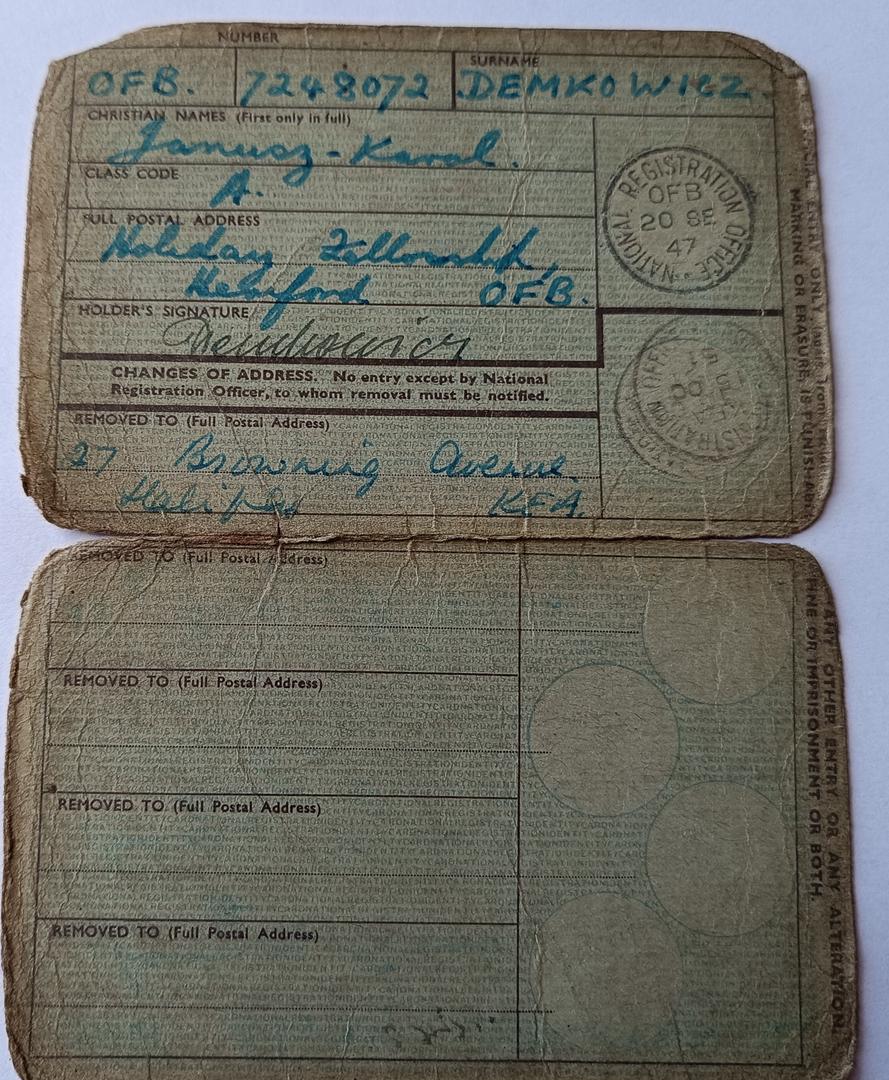 NUMBER
SURNAME
OFB. 7248072 DEMKOWICZ.
CHRISTIAN NAMES (First only in full)
Janusz-Karol.
CLASS CODE
A.
FULL POSTAL ADDRESS
Holiday Fellowship,
OFB.
HOLDER'S SIGNATURE
CHANGES OF ADDRESS. No entry except by National
Registration Officer, to whom removal must be notified.
REMOVED TO (Full Postal Address)
27 Browning Avenue
Halifax KFA.
NATIONAL REGISTRATION OFFICE
OFB
20 SE
47
MARKING OR ERASURE, IS PUNISHABLE
REMOVED TO (Full Postal Address)
REMOVED TO (Full Postal Address)
REMOVED TO (Full Postal Address)
REMOVED TO (Full Postal Address)
ANY OTHER ENTRY OR ANY ALTERATION,
FINE OR IMPRISONMENT OR BOTH.